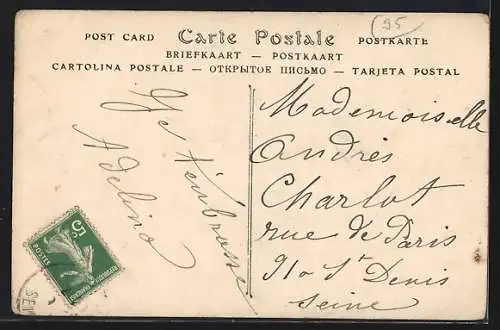 95
POST CARD Carte Postale POSTKARTE
BRIEFKAART — POSTKAART
CARTOLINA POSTALE — ОТКРЫТОЕ ПИСЬМО — TARJETA POSTAL
Je t'embrasse
Adelina
Mademoiselle
Andrés
Charlot
rue de Paris
91 à St Denis
Seine
5c
POSTES
REPUBLIQUE FRANCAISE
SEI